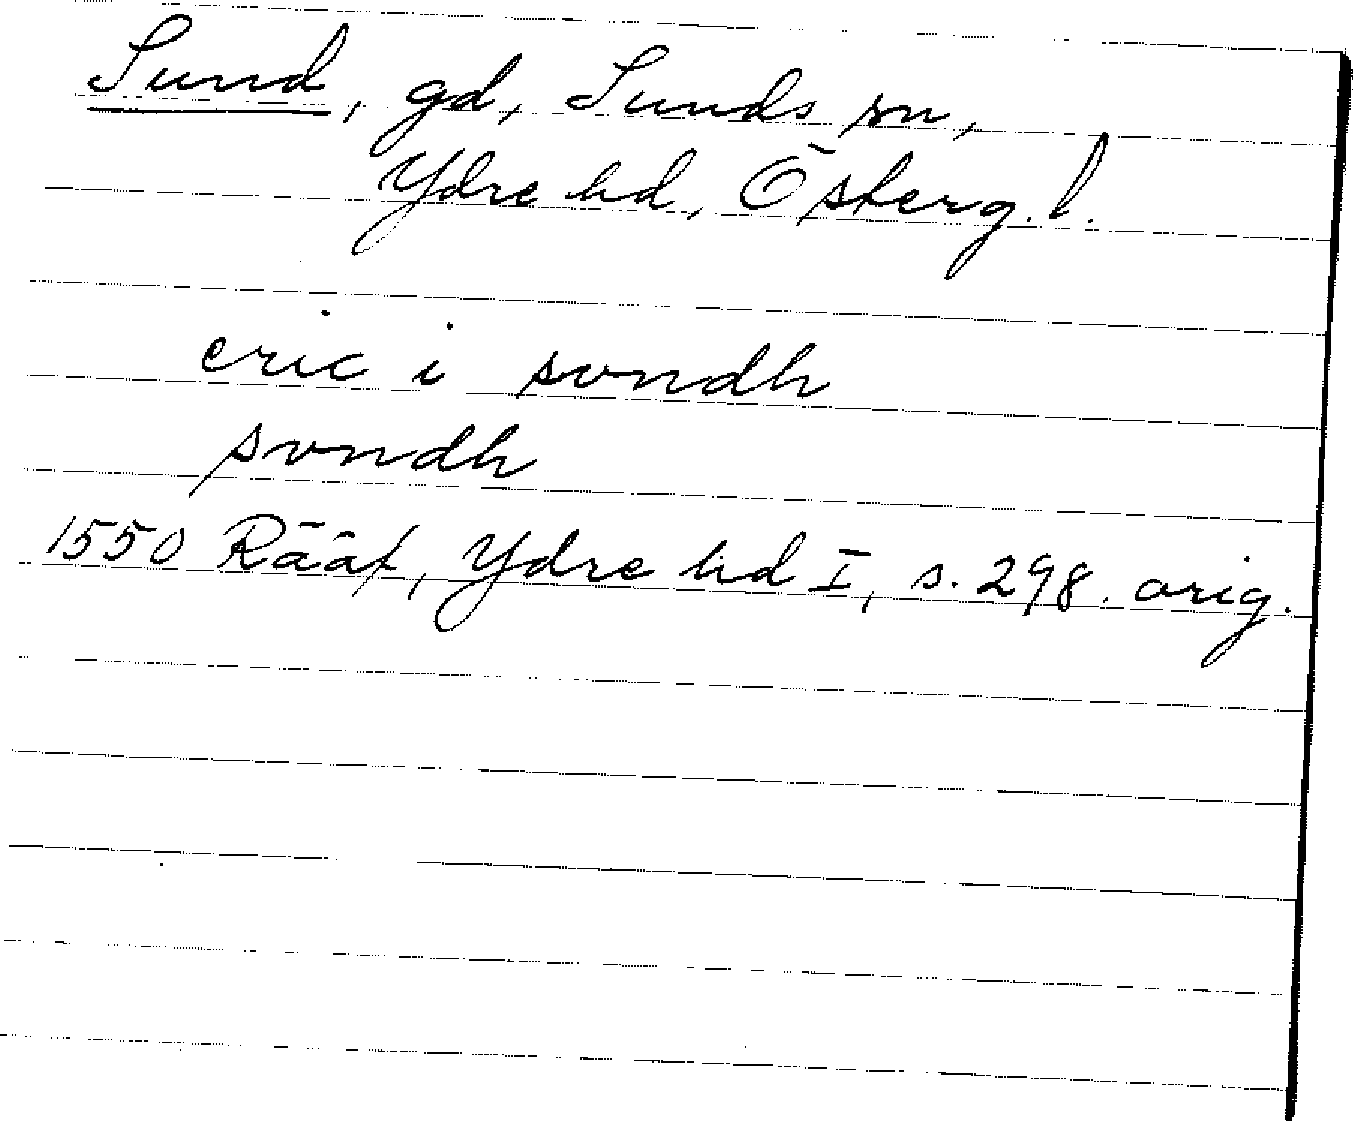 Sund, gd, Sunds sn,
Ydre hd, Österg. l.
eric i svndh
svndh
1550 Rääf, Ydre hd I, s. 298. orig.